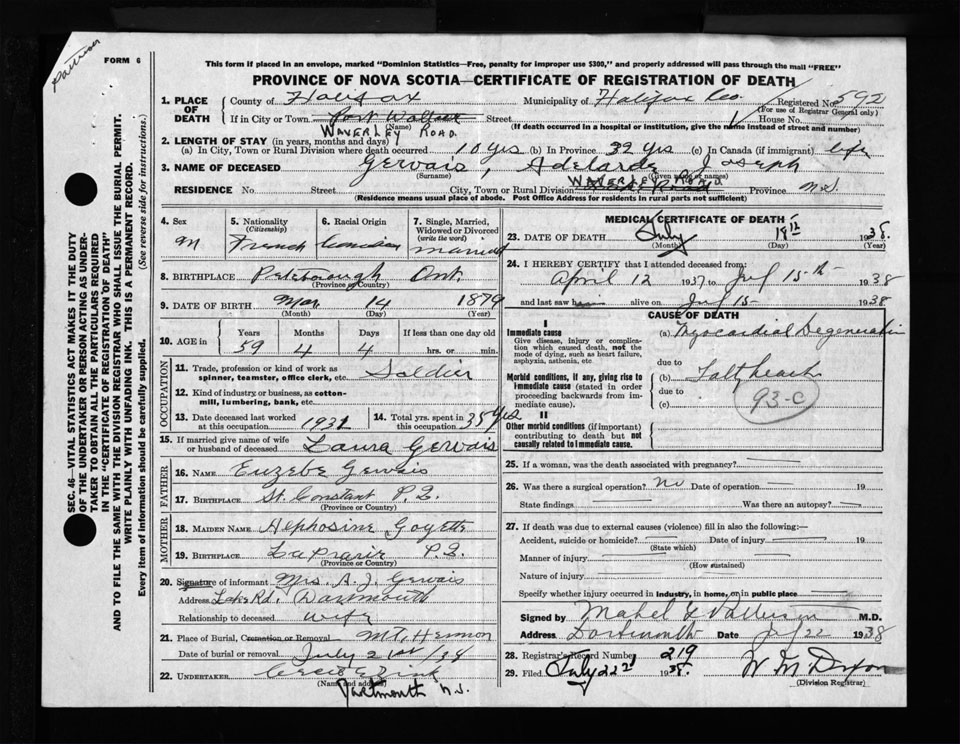 Patterson
FORM 6
This form if placed in an envelope, marked "Dominion Statistics—Free, penalty for improper use $300," and properly addressed will pass through the mail "FREE"
PROVINCE OF NOVA SCOTIA—CERTIFICATE OF REGISTRATION OF DEATH
1. PLACE OF DEATH
County of Halifax Municipality of Halifax Co. Registered No. 592
(For use of Registrar General only)
If in City or Town Port Wallace Street House No.
(Name) (If death occurred in a hospital or institution, give the name instead of street and number)
WAVERLEY ROAD.
2. LENGTH OF STAY (in years, months and days)
(a) In City, Town or Rural Division where death occurred 10 yrs (b) In Province 32 yrs (c) In Canada (if immigrant) life
3. NAME OF DECEASED Gervais, Adelarde Joseph
(Surname) (Given name or names)
RESIDENCE No. Street City, Town or Rural Division WAVERLEY Road Province N.S.
(Residence means usual place of abode. Post Office Address for residents in rural parts not sufficient)
SEC. 46—VITAL STATISTICS ACT MAKES IT THE DUTY
OF THE UNDERTAKER OR PERSON ACTING AS UNDER-
TAKER TO OBTAIN ALL THE PARTICULARS REQUIRED
IN THE "CERTIFICATE OF REGISTRATION OF DEATH"
AND TO FILE THE SAME WITH THE DIVISION REGISTRAR WHO SHALL ISSUE THE BURIAL PERMIT.
WRITE PLAINLY WITH UNFADING INK. THIS IS A PERMANENT RECORD.
Every item of information should be carefully supplied. (See reverse side for instructions.)
4. Sex M
5. Nationality (Citizenship) French
6. Racial Origin Canadian
7. Single, Married, Widowed or Divorced (write the word) married
8. BIRTHPLACE Peterborough Ont.
(Province or Country)
9. DATE OF BIRTH Mar 14 1879
(Month) (Day) (Year)
10. AGE in Years 59 Months 4 Days 4 If less than one day
hrs. or min.
OCCUPATION
11. Trade, profession or kind of work as Soldier
spinner, teamster, office clerk, etc.
12. Kind of industry or business, as cotton-
mill, lumbering, bank, etc.
13. Date deceased last worked at this occupation 1931
14. Total yrs. spent in this occupation 35 yrs
15. If married give name of wife or husband of deceased Laura Gervais
FATHER
16. NAME Euzebe Gervais
17. BIRTHPLACE St. Constant P.Q.
(Province or Country)
MOTHER
18. MAIDEN NAME Hephosine Goyette
19. BIRTHPLACE La Prarie P.Q.
(Province or Country)
20. Signature of informant Mrs. A. J. Gervais
Address Lake Rd. Dartmouth
Relationship to deceased wife
21. Place of Burial, Cremation or Removal MT. Hermon
Date of burial or removal July 21st/38
22. UNDERTAKER
(Name and address)
Dartmouth N.S.
MEDICAL CERTIFICATE OF DEATH
23. DATE OF DEATH July 18th 1938.
(Month) (Day) (Year)
24. I HEREBY CERTIFY that I attended deceased from:
April 12 1937 to July 15th 1938
and last saw him alive on July 15 1938
CAUSE OF DEATH
I
Immediate cause
Give disease, injury or complica-
tion which caused death, not the
mode of dying, such as heart failure,
asphyxia, asthenia, etc.
(a) Myocardial Degeneration
due to
Morbid conditions, if any, giving rise to
immediate cause (stated in order
proceeding backwards from im-
mediate cause).
(b) Fatty heart
due to
(c) 93-C
II
Other morbid conditions (if important)
contributing to death but not
causally related to immediate cause.
25. If a woman, was the death associated with pregnancy?
26. Was there a surgical operation? no Date of operation 19
State findings Was there an autopsy?
27. If death was due to external causes (violence) fill in also the following:—
Accident, suicide or homicide? Date of injury 19
(State which)
Manner of injury
(How sustained)
Nature of injury
Specify whether injury occurred in industry, in home, or in public place
Signed by Mabel E Patterson M.D.
Address Dartmouth Date July 22 1938
28. Registrar's Record Number 219
29. Filed July 22nd 1938. W M Dixon
(Division Registrar)